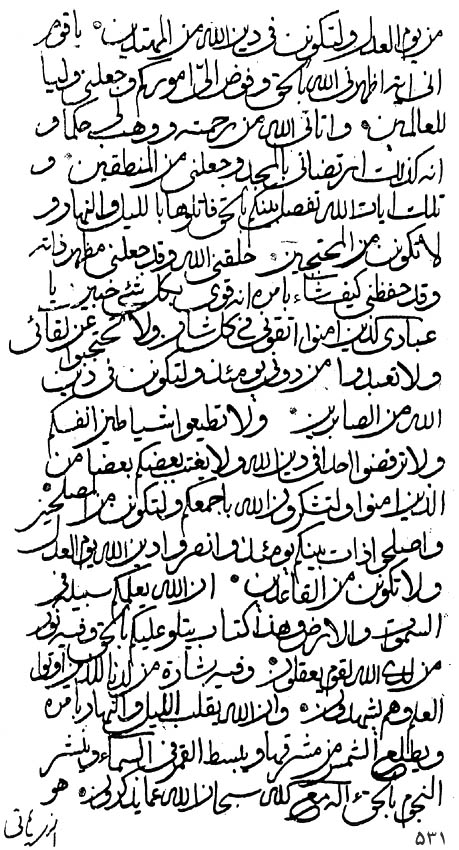 من يوم العدل ولتكونن فى دين الله من المهتدين ° يا قوم
انى اية اظهرنى الله بالحق وفوض الىّ اموركم وجعلنى وليا
للعالمين ° واتانى الله من رحمته ووهب لى حكما و
انه كذلك ارتضانى بالمجد وجعلنى من المنطقين و
تلك ايات الله نفصل بينكم بالحق فاتلوها بالليل والنهار و
لا تكونن من المحتجبين ° خلقنى الله وقد جعلنى مظهر ذاته
وقد حفظنى كيف شاء بامره انه قوى بكل شئ خبير ° يا
عبادى الذين امنوا اتقونى فى كل شان ولا تحتجبوا عن لقائى
ولا تعبدوا من دونى يومئذ ولتكونن فى دين
الله من الصابرين ° ولا تطيعوا شياطين انفسكم
ولا ترفضوا احدا فى دين الله ولا يغتب بعضكم بعضا من
الذين امنوا ولتشكرون الله باجمعكم ولتكونن من المصلحين
واصلحوا ذات بينكم يومئذ وانصروا دين الله يوم العدل
ولا تكونن من القاعدين ° ان الله يعلمكم سبيله فى
السموت والارض وهذا كتاب يتلو عليكم بالحق وفيه نور
من لدى الله لقوم يعقلون ° وفيه بشارة من لدنا للذين اوتوا
العلم وهم يشهدون ° وان الله يقلب الليل والنهار بامره
ويطلع الشمس من مشرقها ويبسط القمر فى السماء وينشر
النجوم بالحق ءاله مع الله سبحان الله عما يذكرون ° هو
٥٣١